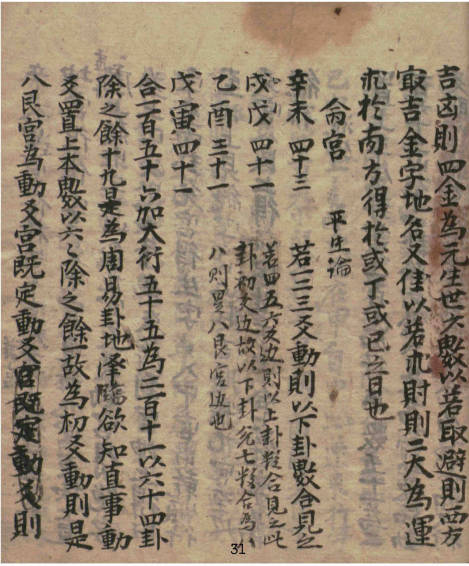 吉凶則四金為元生世六數以若取避則西方
冣吉金字地名又佳以若求財則二天為運
求於南方得於或丁或己之日也
命宮 平生論
辛未 四十三 若一二三爻動則以下卦數合見之
戊戌 四十一 若四五六爻边則以上卦數合見之此
卦初爻边故以下卦兌七數合為八
乙酉 三十一 八則畢八艮宮边也
戊寅 四十一
合一百五十六加大衍五十五為二百十一以六十四卦
除之餘十九是為周易卦地澤臨欲知直事動
爻置上本數以六々除之餘一故為初爻動則是
八艮宮為動爻宮既定動爻宮既定動爻則
31